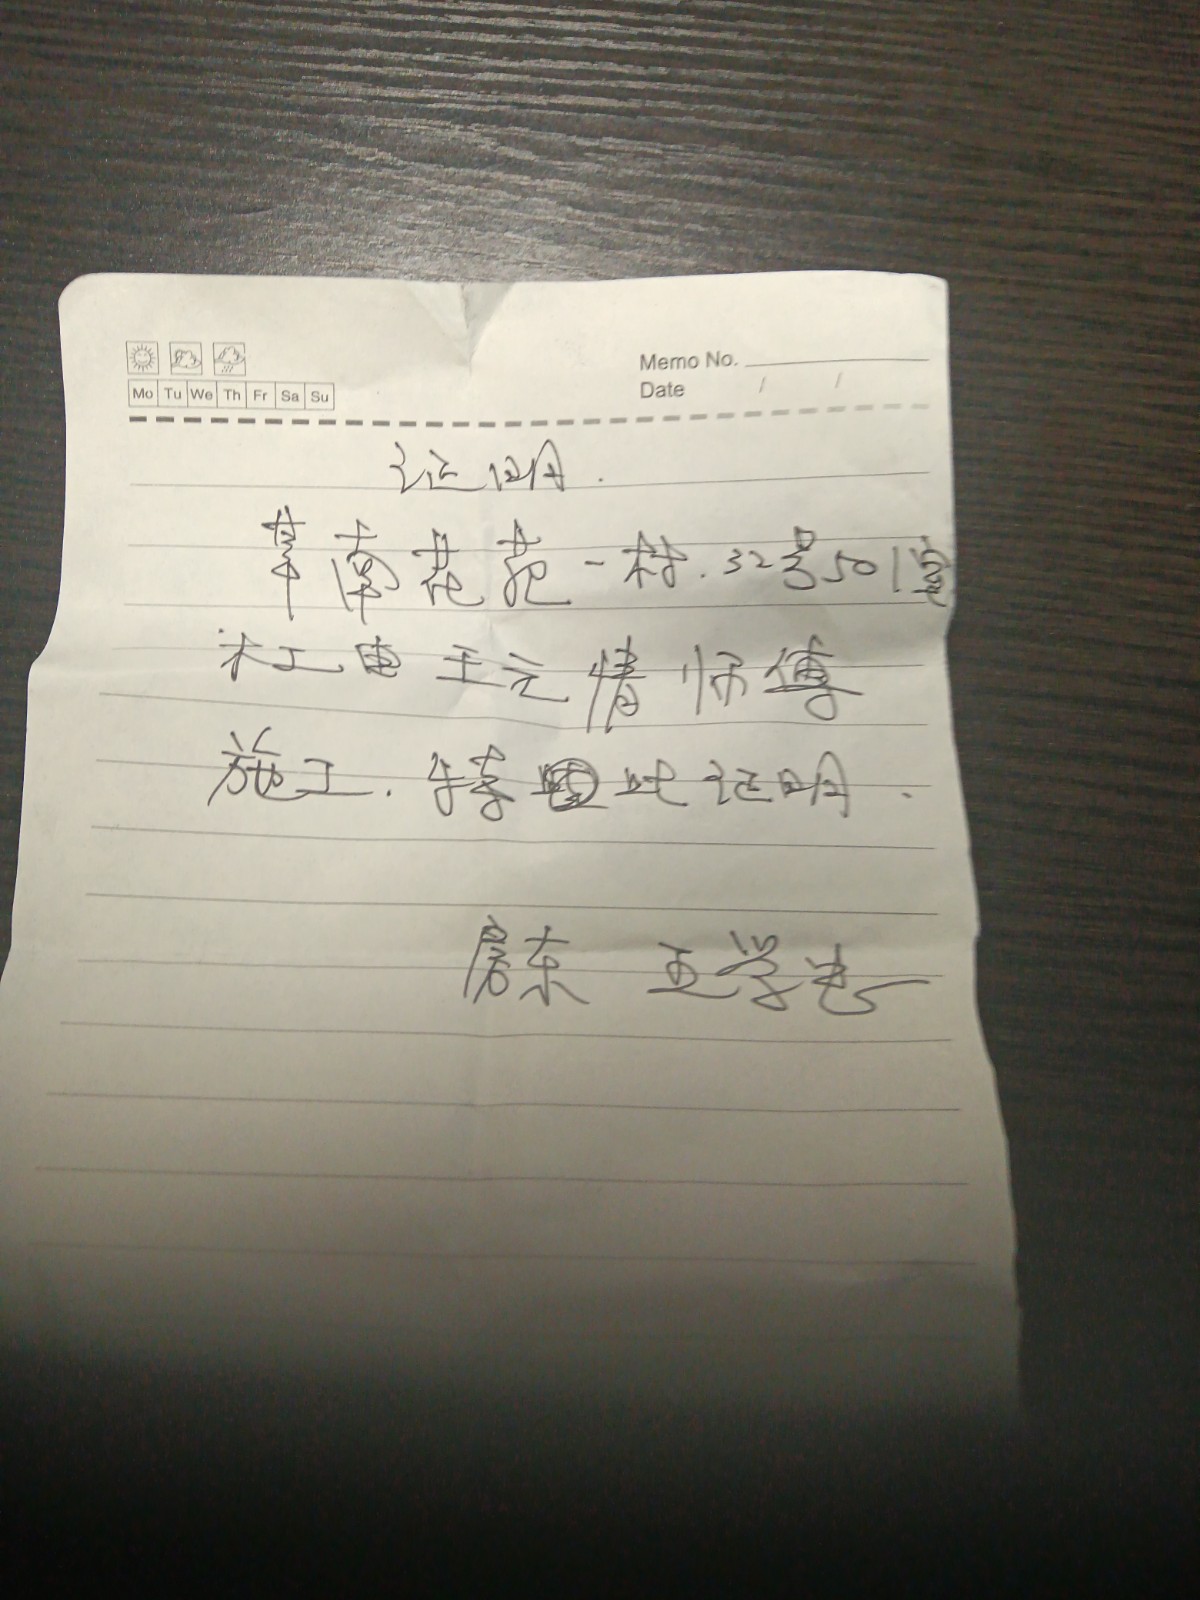 Memo No.
Mo Tu We Th Fr Sa Su
Date / /
证明.
莘南花苑一村.32号501
木工由王元情师傅
施工.特此证明.
房东 王学志